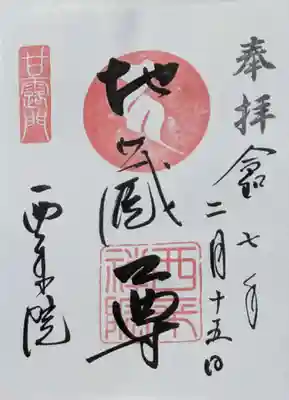 奉拝
令和七年
二月十五日
地蔵尊
甘露門
西来院